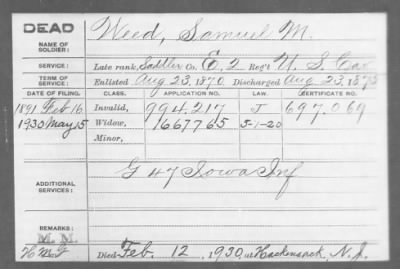 DEAD
NAME OF SOLDIER: Weed, Samuel M.
SERVICE: Late rank, Saddler Co. E, 2 Reg't U. S. Cav
TERM OF SERVICE: Enlisted Aug 23, 1870 Discharged Aug 23, 1875
DATE OF FILING. CLASS. APPLICATION NO. LAW. CERTIFICATE NO.
1891 Feb 16 Invalid, 994.217 J 697.069
1930 May 15 Widow, 1667765 5-1-20
Minor,
ADDITIONAL SERVICES: G 47 Iowa Inf
REMARKS:
M. M.
Died Feb. 12, 1930, at Hackensack, N. J.